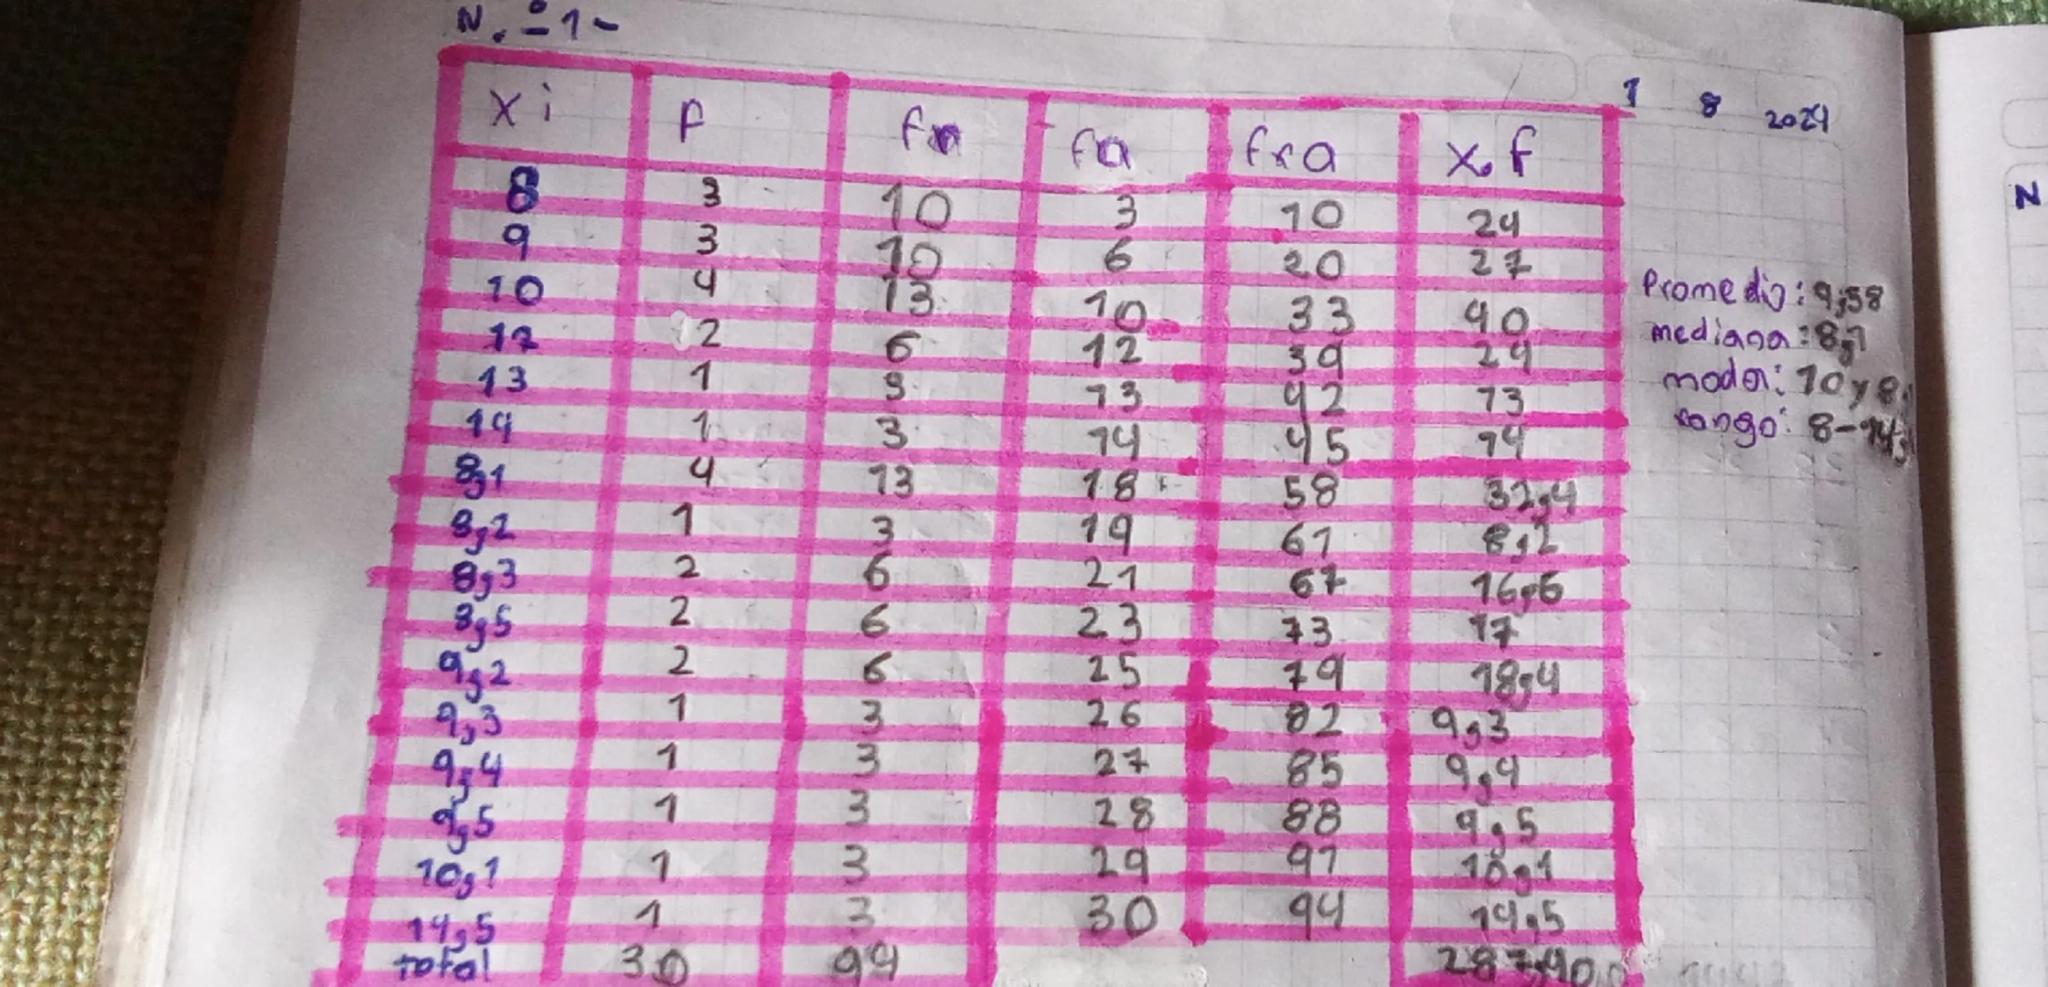 N.º 1-
1 8 2024
xi f fr fa fra x.f
8 3 10 3 10 24
9 3 10 6 20 27
10 4 13 10 33 40
12 2 6 12 39 24
13 1 3 13 42 13
14 1 3 14 45 14
8,1 4 13 18 58 32,4
8,2 1 3 19 61 8,2
8,3 2 6 21 67 16,6
8,5 2 6 23 73 17
9,2 2 6 25 79 18,4
9,3 1 3 26 82 9,3
9,4 1 3 27 85 9,4
9,5 1 3 28 88 9,5
10,1 1 3 29 91 10,1
14,5 1 3 30 94 14,5
total 30 94 287,40
Promedio: 9,58
mediana: 8,1
moda: 10 y 8,
rango: 8-14,
N